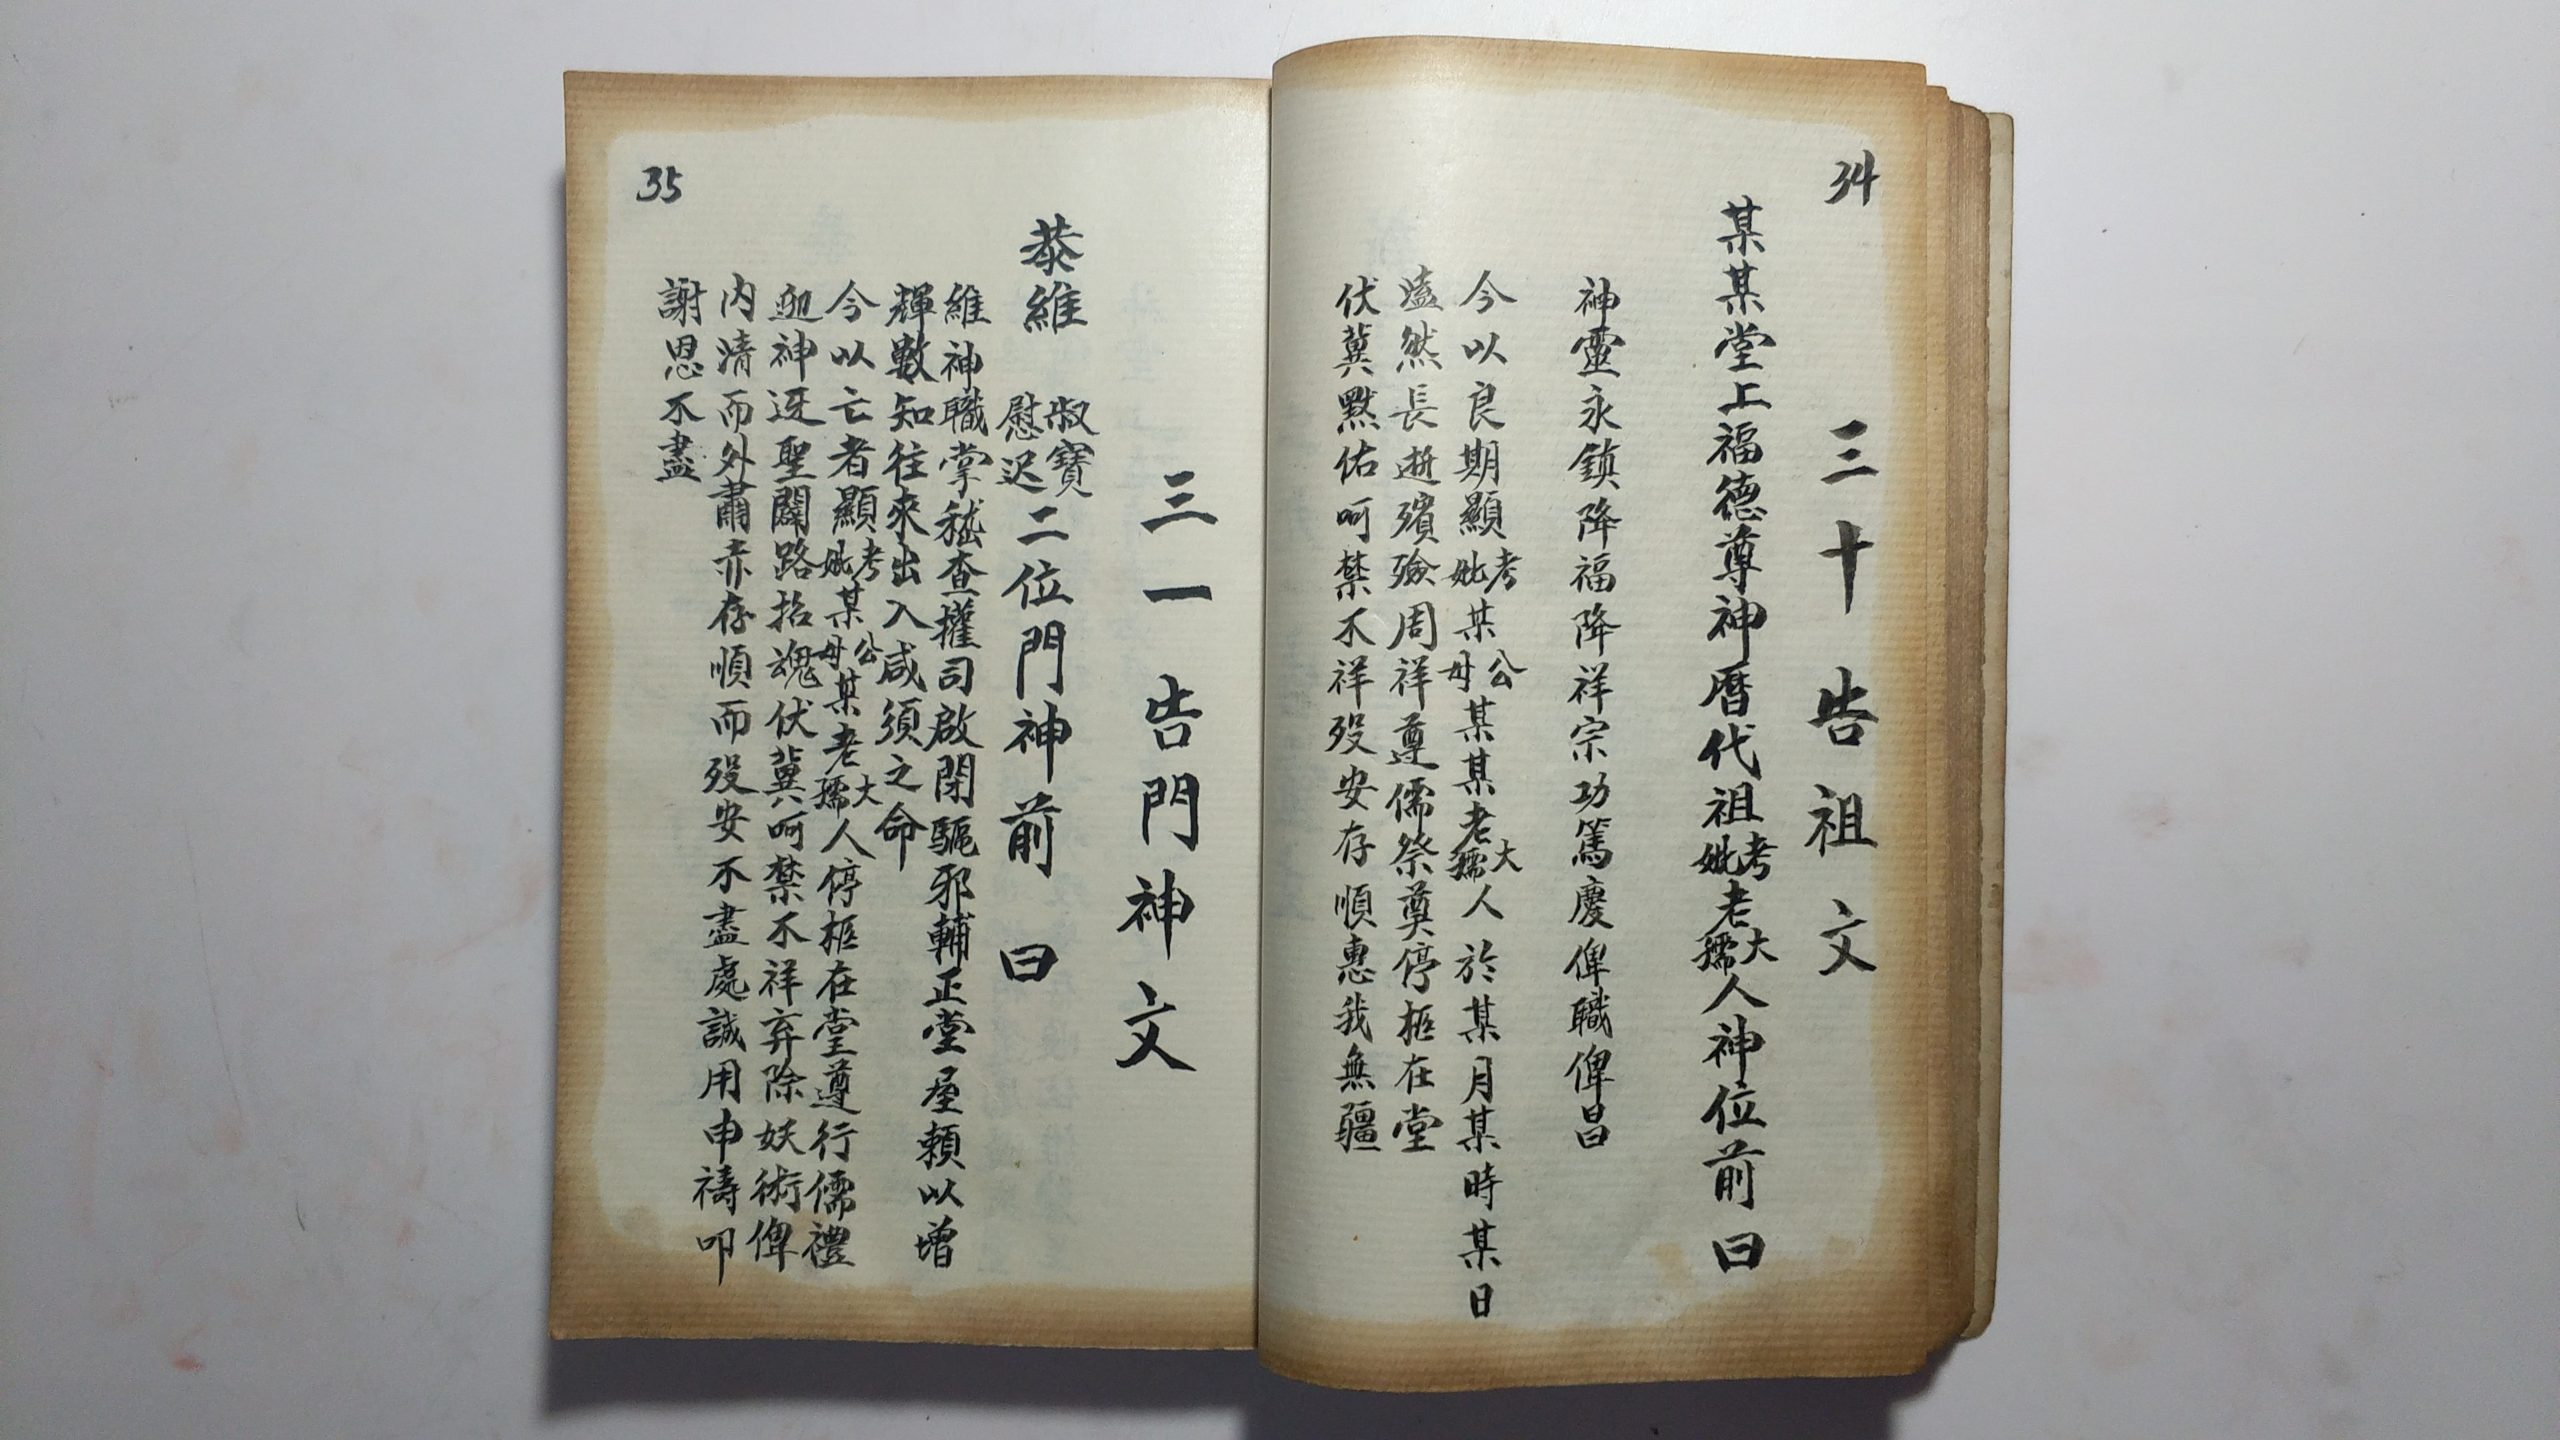 34
三十 告祖文
某某堂上福德尊神曆代祖考妣老大孺人神位前曰
神靈永鎮降福降祥宗功篤慶俾職俾昌
今以良期顯考妣某公母某某老大孺人於某月某時某日
溘然長逝殯殮周祥遵儒祭奠停柩在堂
伏冀默佑呵禁不祥歿安存順惠我無疆
35
三一 告門神文
恭維 叔寶慰迟二位門神前 曰
維神職掌嵇查權司啟閉驅邪輔正堂屋賴以增
輝數知往來出入咸須之命
今以亡者顯考妣某公母某老大孺人停柩在堂遵行儒禮
迎神迓聖闢路招魂伏冀呵禁不祥弃除妖術俾
内清而外肅亦存順而歿安不盡處誠用申禱叩
謝恩不盡